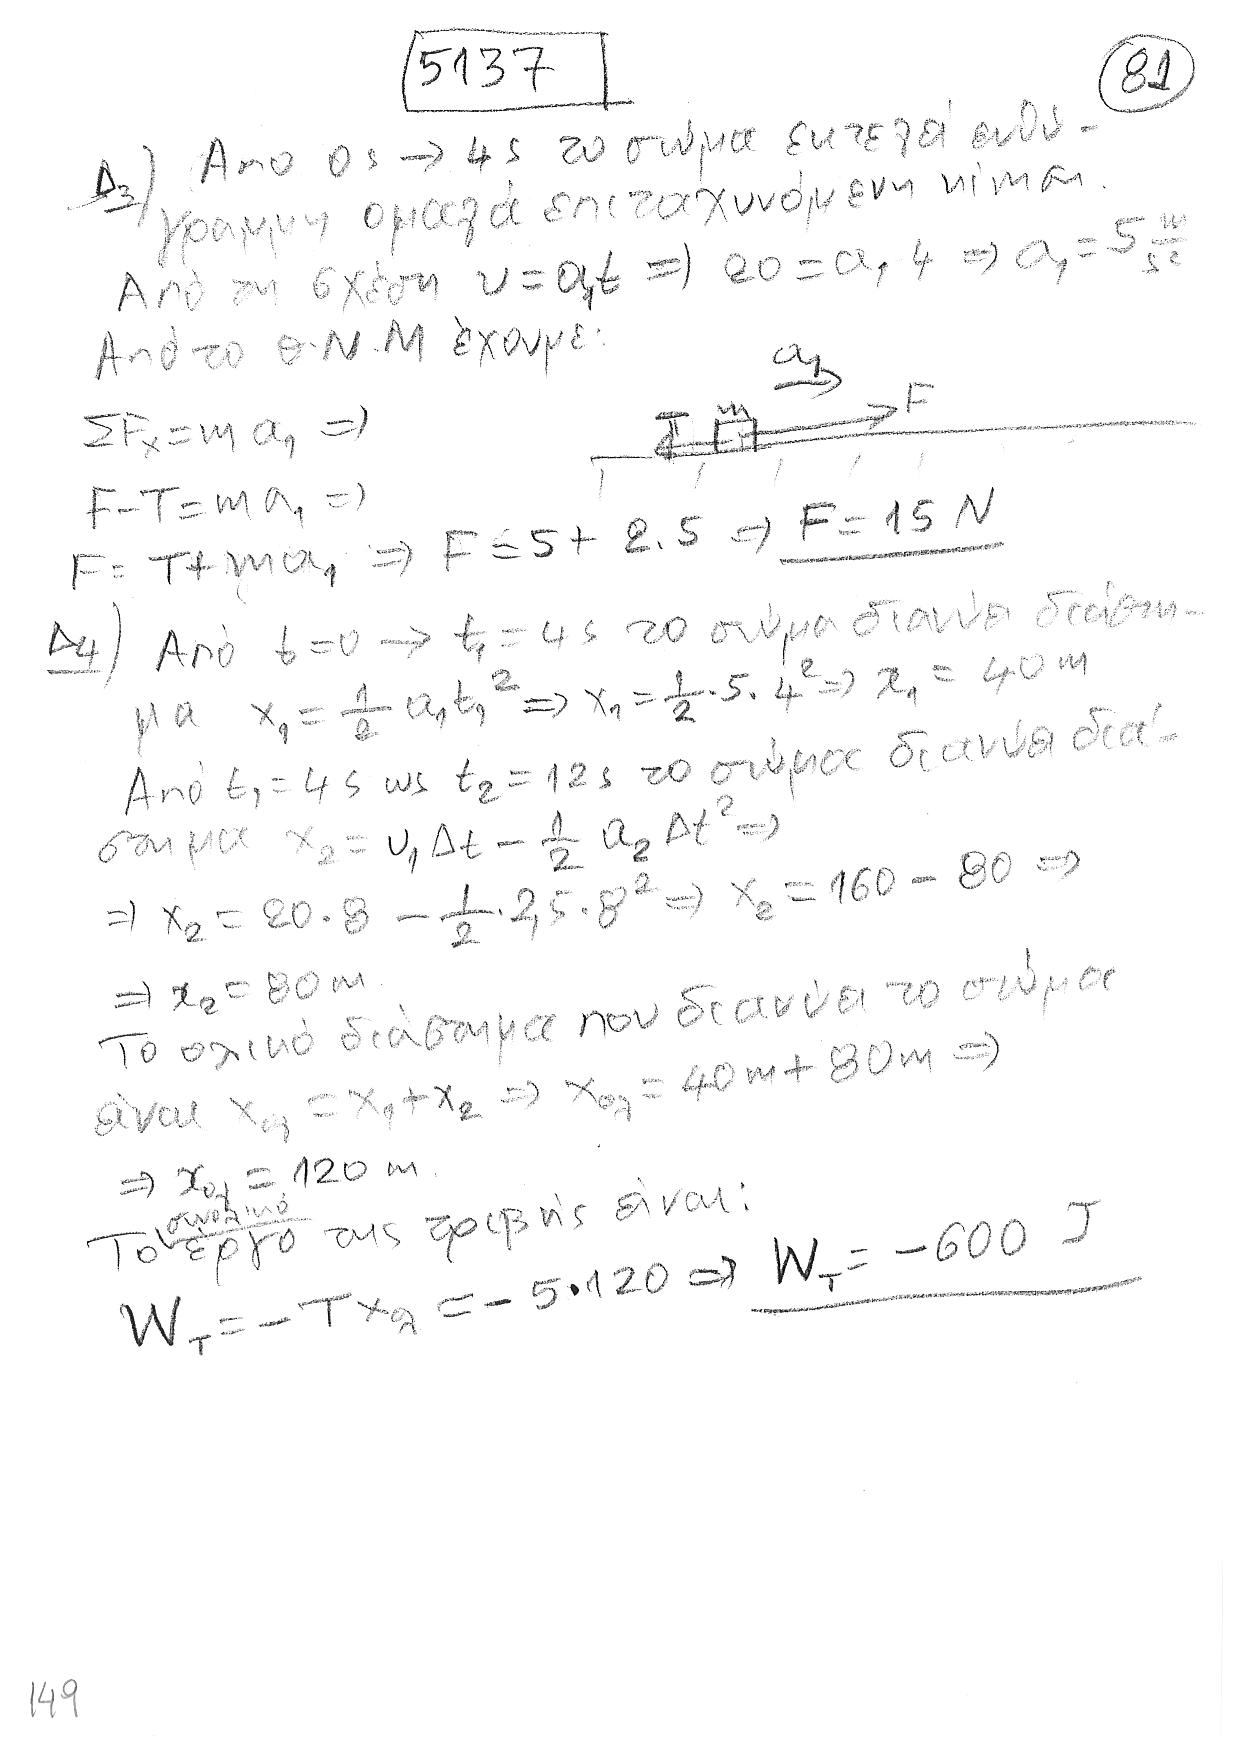 5137
81
Δ3) Από 0s → 4s το σώμα εκτελεί ευθύ-
γραμμη ομαλά επιταχυνόμενη κίνηση.
Από τη σχέση υ = α₁t ⇒ 20 = α₁ 4 ⇒ α₁ = 5 m/s²
Από το Θ.Ν.Μ έχουμε:
α₁
ΣFx = m α₁ ⇒
T m F
F - T = m α₁ ⇒
F = T + m α₁ ⇒ F = 5 + 2.5 ⇒ F = 15 N
Δ4) Από t = 0 → t₁ = 4s το σώμα διανύει διάστη-
μα x₁ = 1/2 α₁ t₁² ⇒ x₁ = 1/2 · 5 · 4² ⇒ x₁ = 40 m
Από t₁ = 4s ως t₂ = 12s το σώμα διανύει διά-
στημα x₂ = υ₁ Δt - 1/2 α₂ Δt² ⇒
⇒ x₂ = 20 · 8 - 1/2 · 2,5 · 8² ⇒ x₂ = 160 - 80 ⇒
⇒ x₂ = 80 m.
Το ολικό διάστημα που διανύει το σώμα
είναι xολ = x₁ + x₂ ⇒ xολ = 40 m + 80 m ⇒
⇒ xολ = 120 m.
Το συνολικό έργο της τριβής είναι:
W_T = - T xολ = - 5 · 120 ⇒ W_T = - 600 J
149